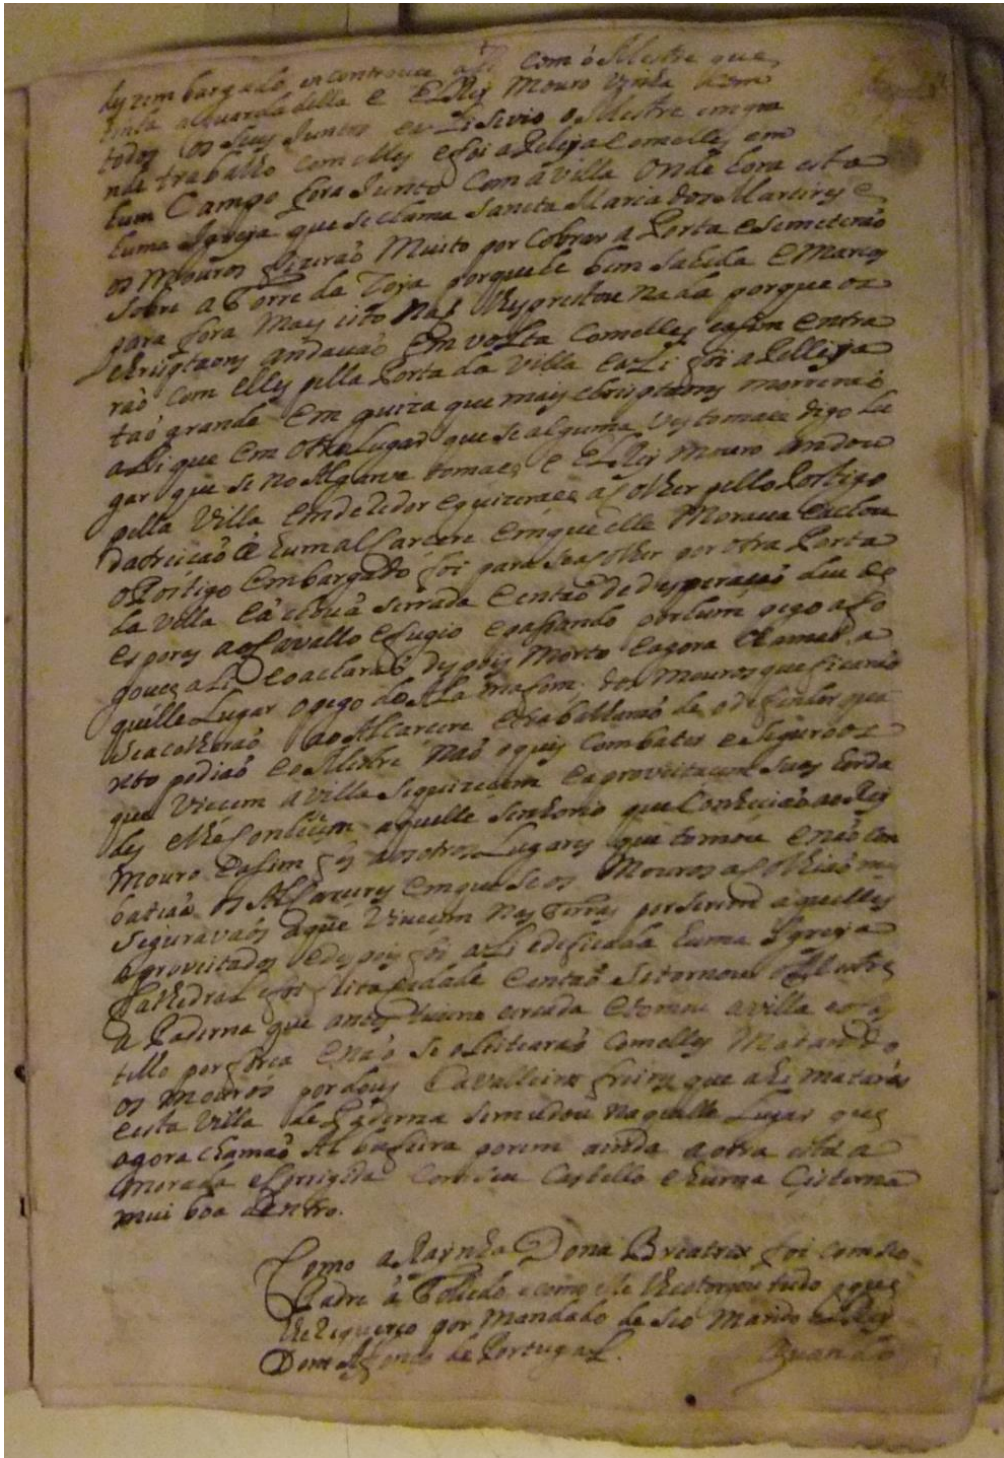 dezembargado encontrouce a Li com o Mestre que
tinha a guarda della e ElRej Mouro vinha Com
todos os seus Juntos e aLi se vio o Mestre em gra
nde trabalho com elles e foi a Peleja com elles em
hum Campo fora Junto Com a villa Onde hora esta
huma Igreja que se chama Sancta Maria dos Martires e
os Mouros fizerão Muito por Cobrar a Porta e se meterão
sobre a Torre da porque he bem sahida e Marcos
para fora Mas isto Não lhes prestou Nada porque os
christaons andavão Em volta Com elles e assim entra
rão com elles pella Porta da Villa e aLi foi a Pelleija
tão grande Em guiza que mais christaons morrerão
aLi que em Otro Lugar que se alguma ves tomace digo Lu
gar que se no Algarve tomace e ElRej Mouro andou
pella Villa Em derredor e quizerace acolher pello Postigo
da treição de hum alcacere Em que elle Morava e achou
o Postigo Embargado foi para se acolher por otra Porta
da Villa e achou a serrada e então de desperação deu de
esporas ao Cavallo e fugio e passando por hum pego afo
gouce aLi e o acharão despois Morto e agora chamão a
quelle Lugar o pego de dos Mouros que ficarão
se acolherão ao Alcacere e trabalharão de o defender qua
nto podião e o Mestre não o quis Combater e segurou os
que Vivecem a villa se quizecem e aproveitacem suas herda
des e lhe conhecem aquelle senhorio que Conhecião ao Rej
Mouro e assim fes a os otros Lugares que tomou e não com
batião os Alcaceres em que se os Mouros acolhião
seguravaõs a que Vivecem Nas Terras por serem aquelles
aproveitados e despois foi aLi edificada huma Igreja
Cathedral e foi feita Cidade e então se tornou o Mestre
a Paderna que antes tivera cercada e tomou a villa e o Cas
tello por força e não se com elles Matando
os Mouros por dous Cavalleiros freires que ahi matarão
e esta Villa de Paderna se mudou naquelle Lugar que
agora chamão Albufeira porem ainda a otra esta a
morada e Corrigida Com seu Castello e huma Cisterna
mui boa dentro.
Como a Raynha Dona Breatrix foi com seo
Padre a Tolledo e como elle lhe otorgou tudo o que
lhe requereo por Mandado de seo Marido ElRey
Dom Afonço de Portugal.
Quando